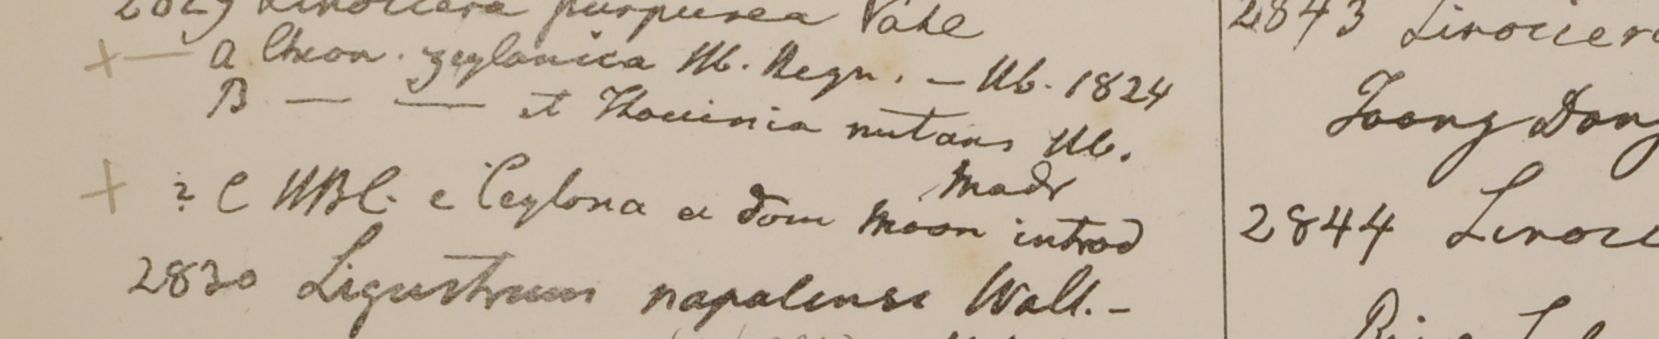 2829 Linociera purpurea Vahl
+ — A Chion. zeylanica Hb. Regn. — Hb. 1824
B — — et Thouinia nutans Hb.
Madr
+ ? C HBC. e Ceylona a dom Moon introd
2830 Ligustrum napalense Wall. -
2843 Linociera
Toong Dong
2844 Linoci